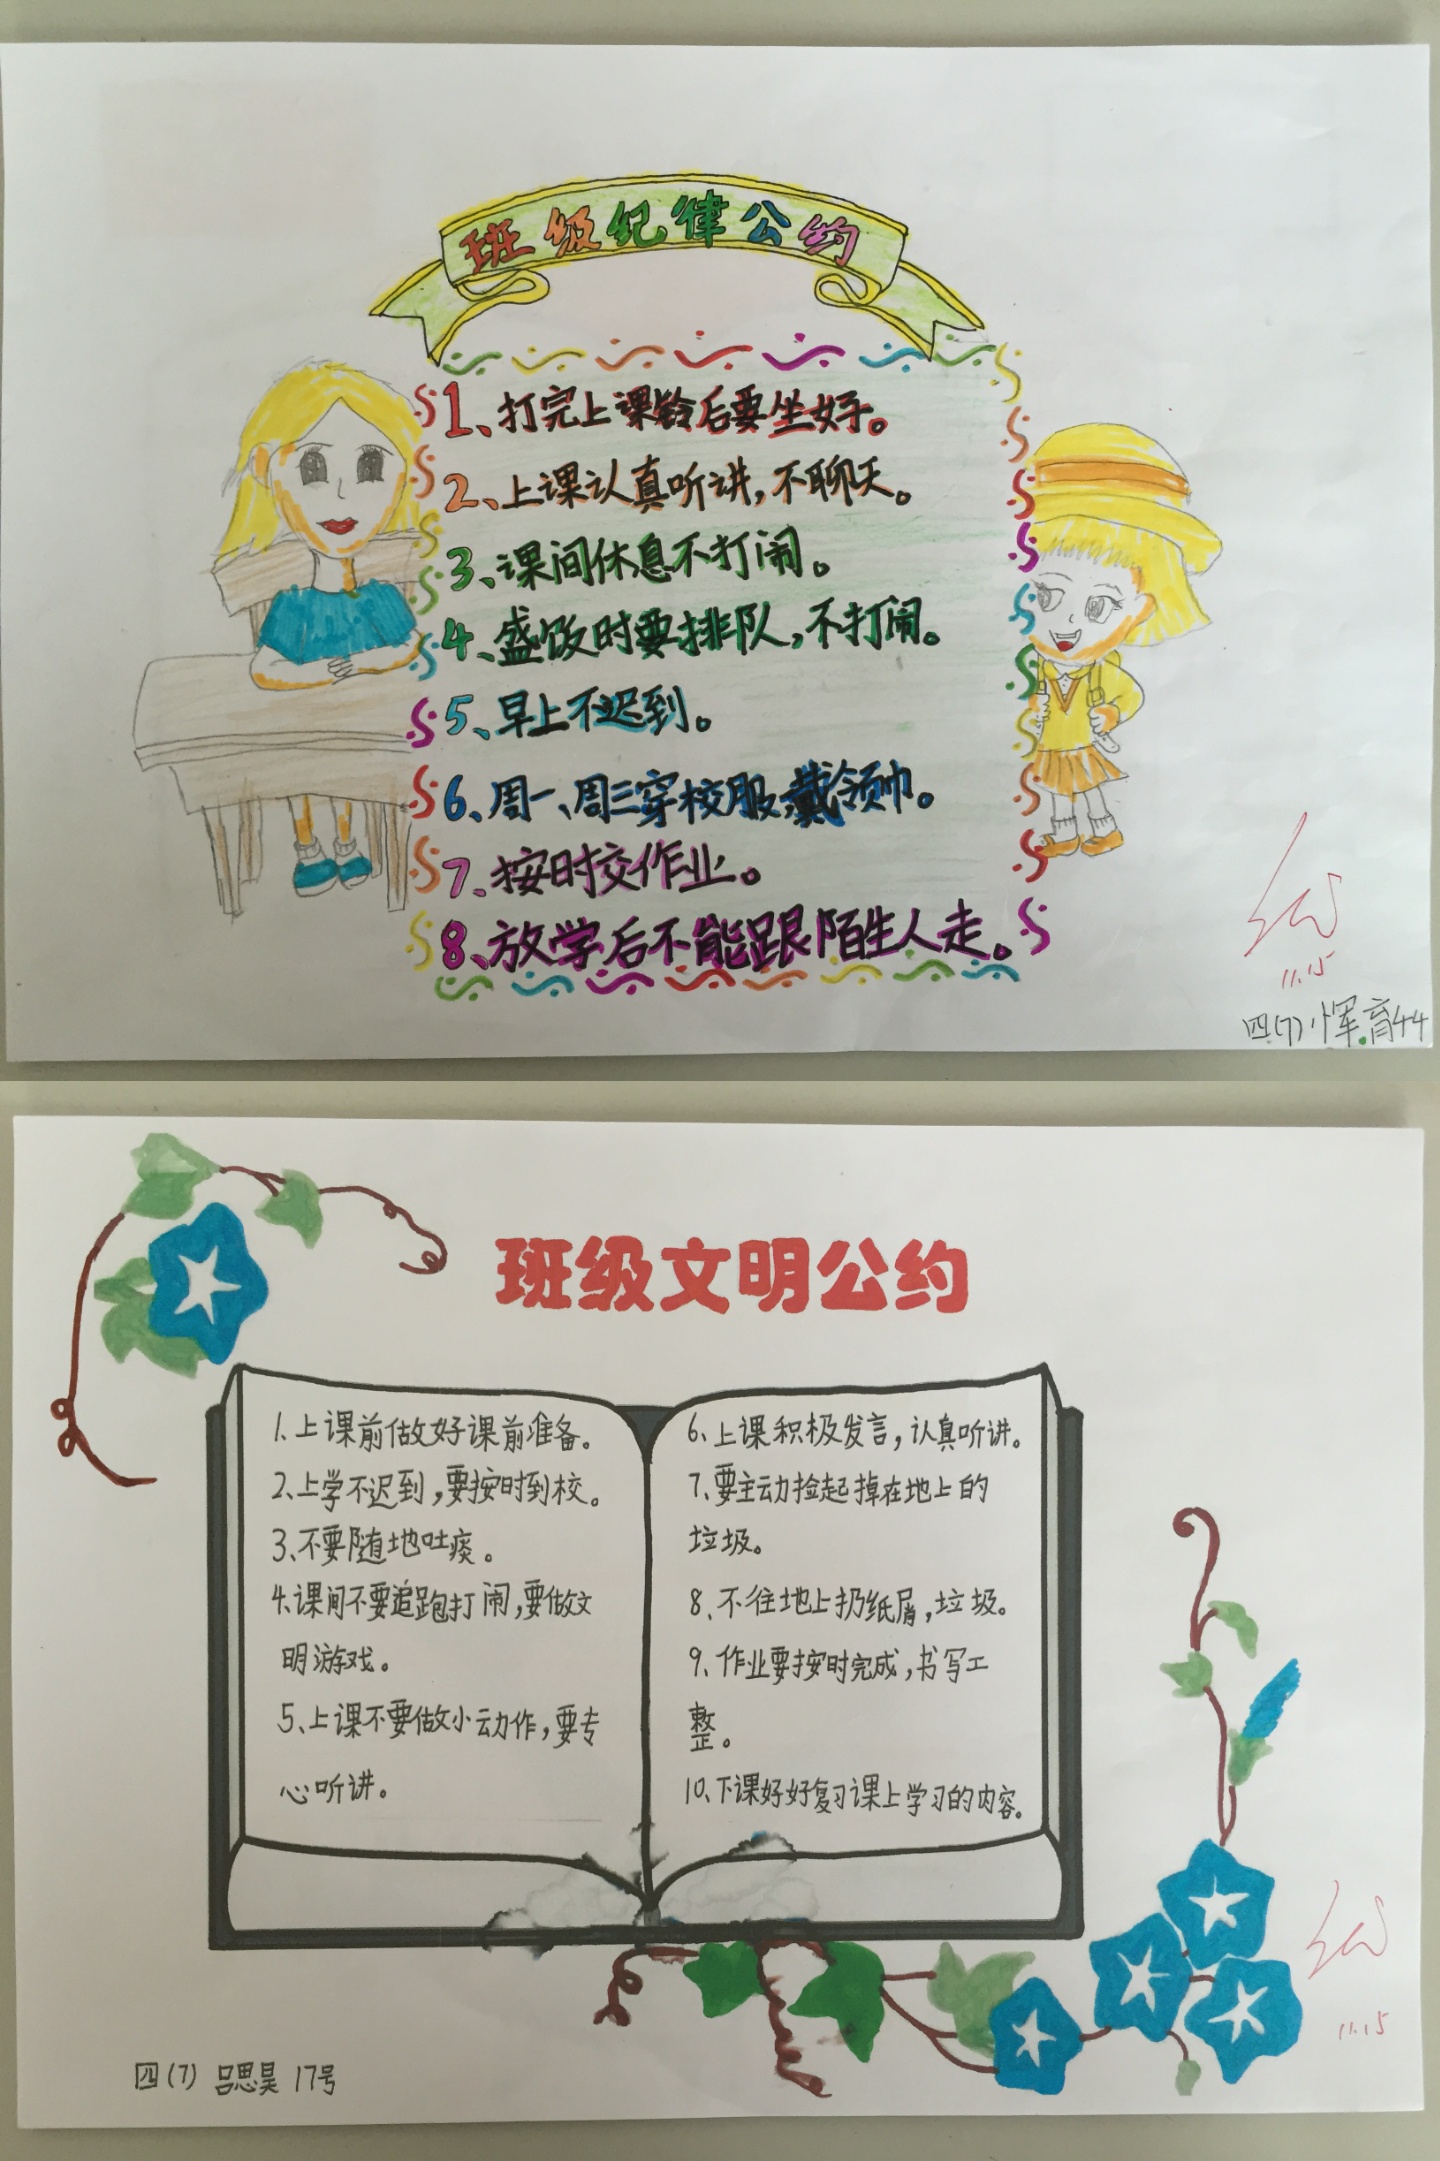 班级纪律公约
1、打完上课铃后要坐好。
2、上课认真听讲,不聊天。
3、课间休息不打闹。
4、盛饭时要排队,不打闹。
5、早上不迟到。
6、周一、周三穿校服,戴领巾。
7、按时交作业。
8、放学后不能跟陌生人走。
11.15
四(7)恽育44
班级文明公约
1、上课前做好课前准备。
2、上学不迟到,要按时到校。
3、不要随地吐痰。
4、课间不要追跑打闹,要做文
明游戏。
5、上课不要做小动作,要专
心听讲。
6、上课积极发言,认真听讲。
7、要主动捡起掉在地上的
垃圾。
8、不往地上扔纸屑,垃圾。
9、作业要按时完成,书写工
整。
10、下课好好复习课上学习的内容。
11.15
四(7) 吕思昊 17号